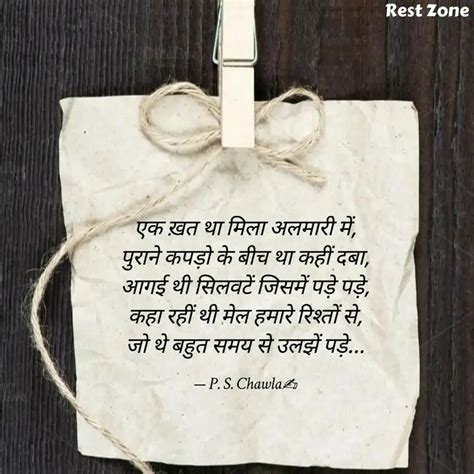 Rest Zone
एक ख़त था मिला अलमारी में,
पुराने कपड़ो के बीच था कहीं दबा,
आगई थी सिलवटें जिसमें पड़े पड़े,
कहा रहीं थी मेल हमारे रिश्तों से,
जो थे बहुत समय से उलझें पड़े...
— P. S. Chawla✍